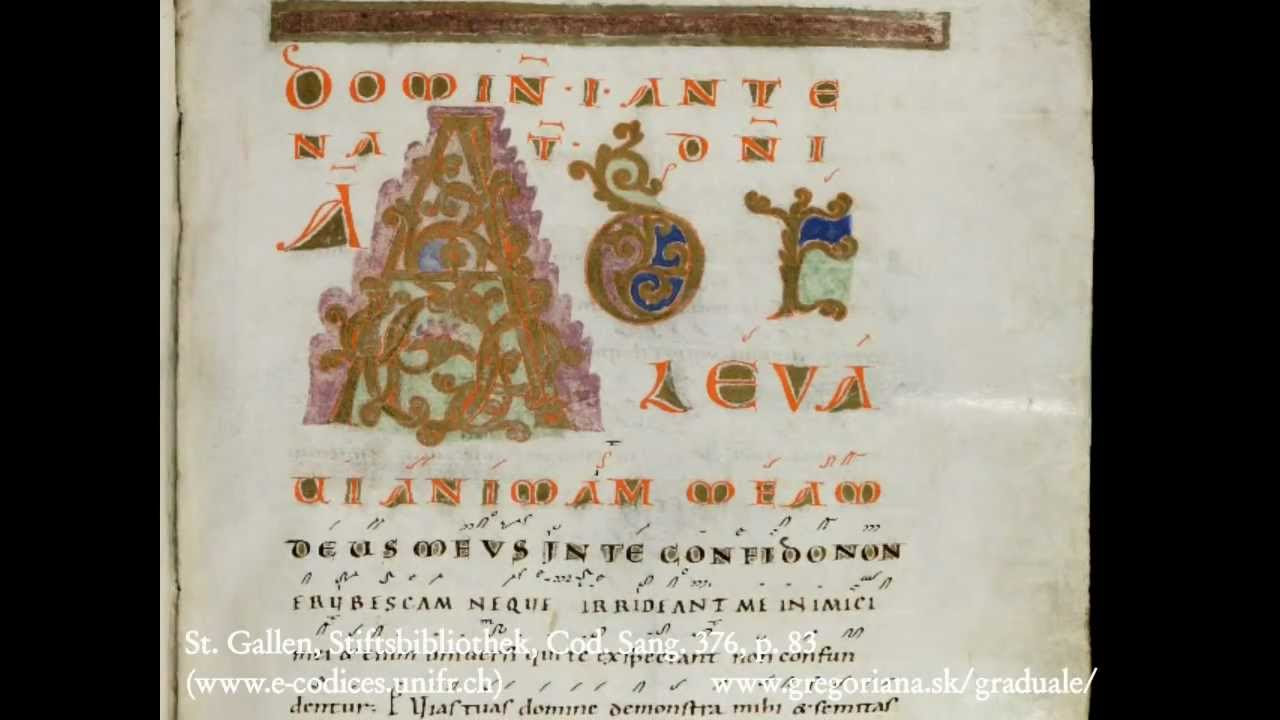 DOMIN̄·I·ANTE
NA T̄· DN̄I
Ā A D T
LEVA
UI ANIMAM MEAM
DEUS MEVS IN TE CONFIDO NON
ERUBESCAM NEQUE IRRIDEANT ME INIMICI
mei & enim uniuersi qui te expectant non confun
dentur: Uias tuas domine demonstra mihi & semitas
St. Gallen, Stiftsbibliothek, Cod. Sang. 376, p. 83
(www.e-codices.unifr.ch) www.gregoriana.sk/graduale/